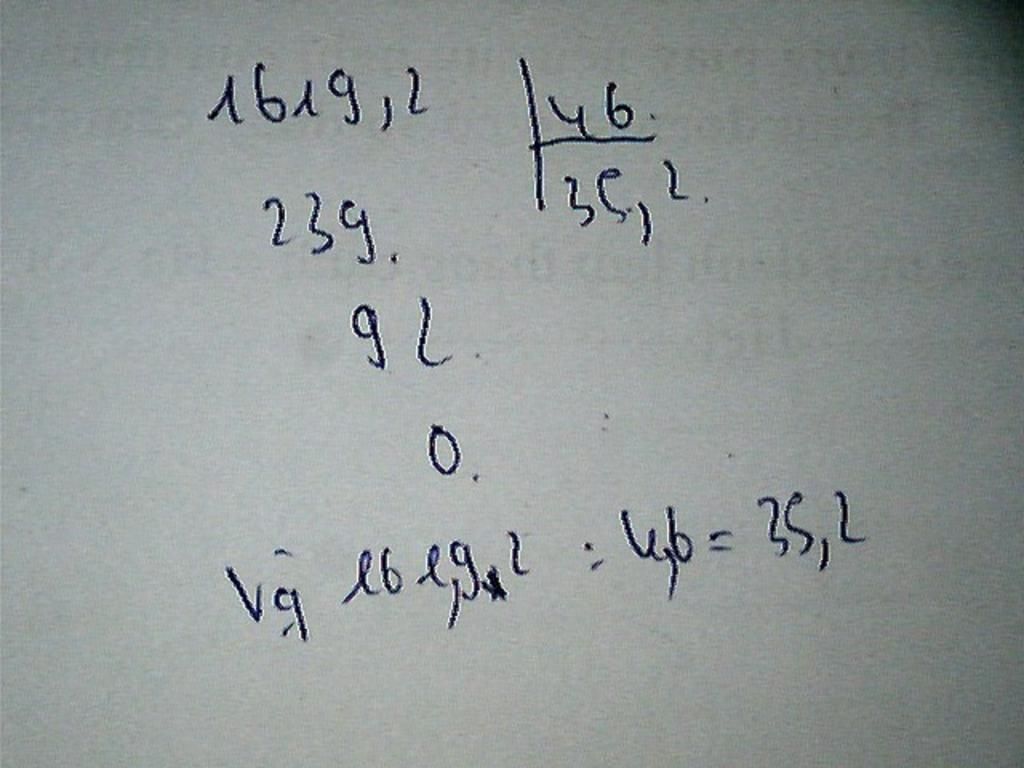 1619,2 46.
35,2.
239.
92.
0.
Vậy 161,92 : 4,6 = 35,2